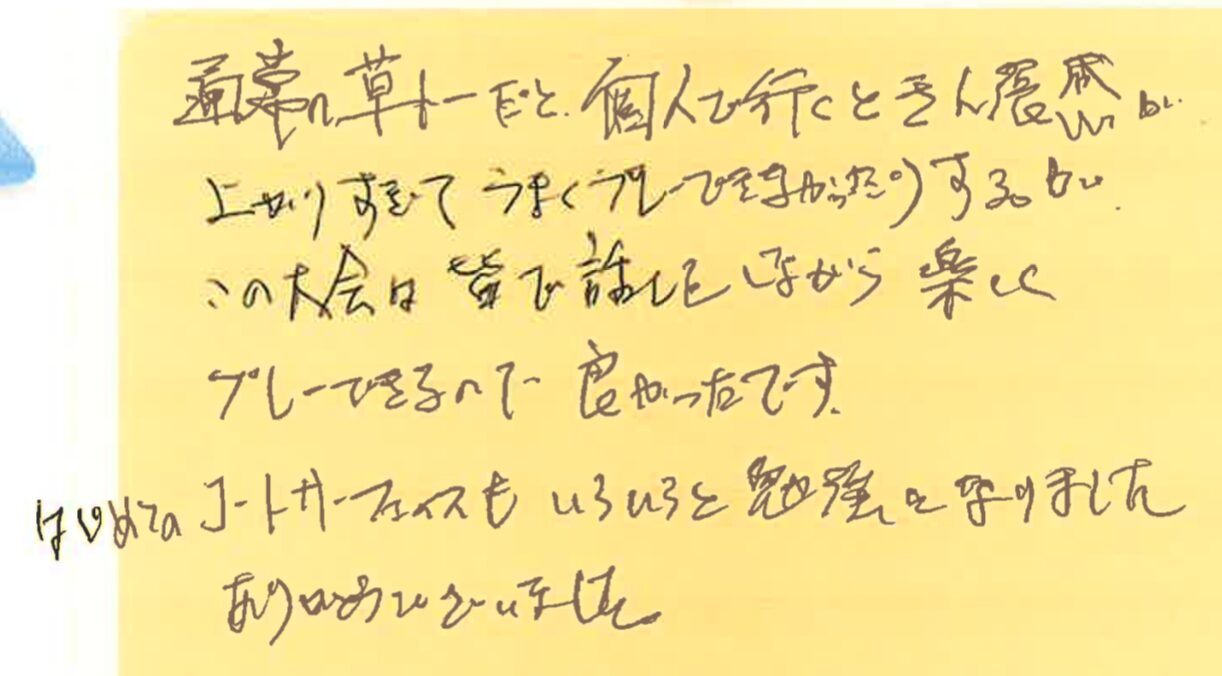 通常の草トーだと、個人で行くときん張感が
上がりすぎてうまくプレーできなかったりするが
この大会は皆で話しをしながら楽しく
プレーできるので良かったです。
はじめてのコートサーフェイスもいろいろと勉強になりました
ありがとうございました